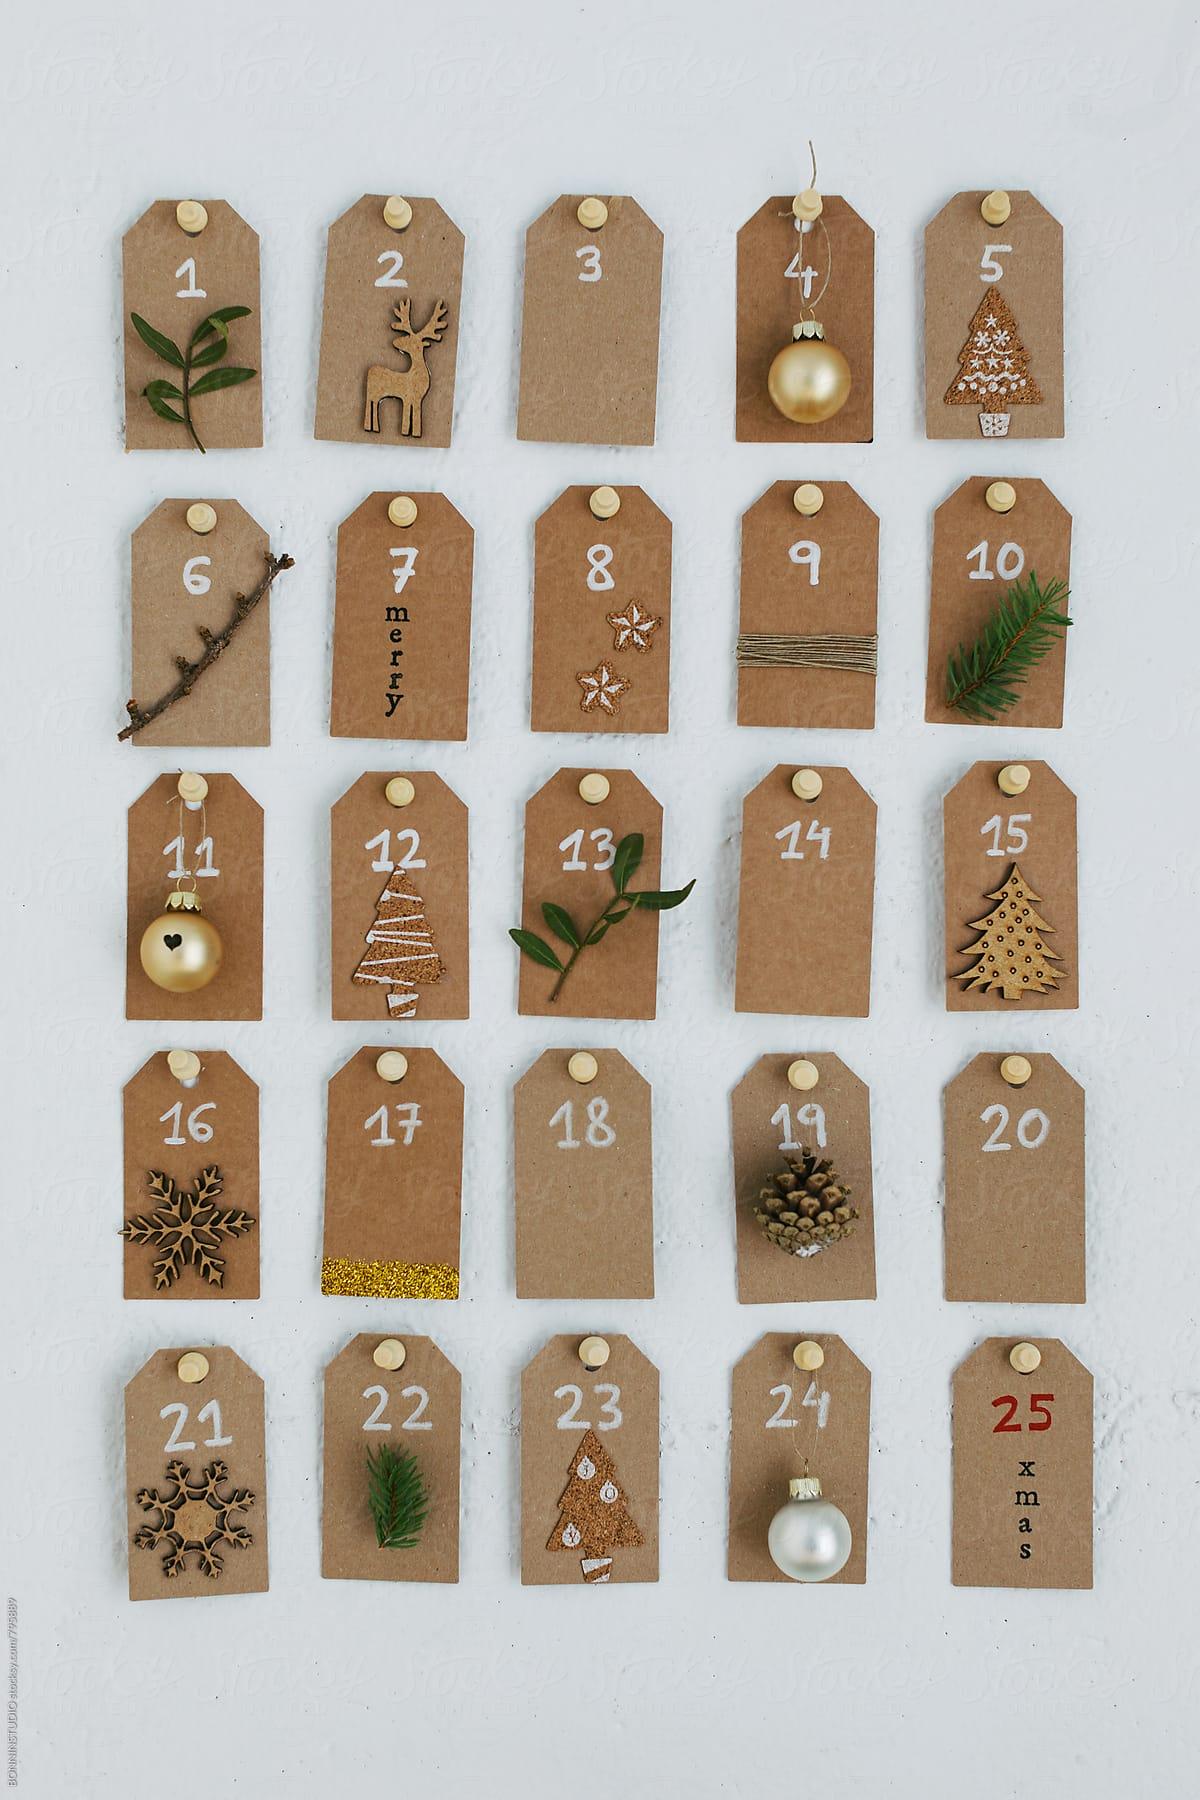 1
2
3
4
5
6
7
merry
8
9
10
11
12
13
14
15
16
17
18
19
20
21
22
23
J
O
Y
24
25
xmas
BONNINSTUDIO stocksy.com/795889
Stocksy
UNITED